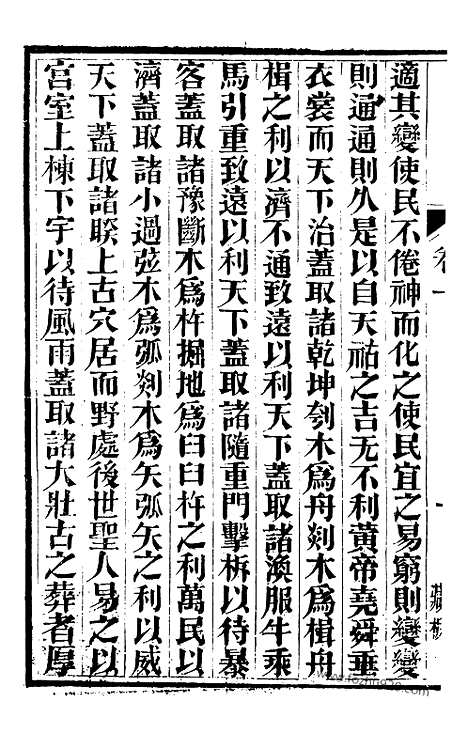 適其變使民不倦神而化之使民宜之易窮則變變
則通通則久是以自天祐之吉无不利黃帝堯舜垂
衣裳而天下治蓋取諸乾坤刳木爲舟剡木爲楫舟
楫之利以濟不通致遠以利天下蓋取諸渙服牛乘
馬引重致遠以利天下蓋取諸隨重門擊柝以待暴
客蓋取諸豫斷木爲杵掘地爲臼臼杵之利萬民以
濟蓋取諸小過弦木爲弧剡木爲矢弧矢之利以威
天下蓋取諸睽上古穴居而野處後世聖人易之以
宮室上棟下宇以待風雨蓋取諸大壯古之葬者厚